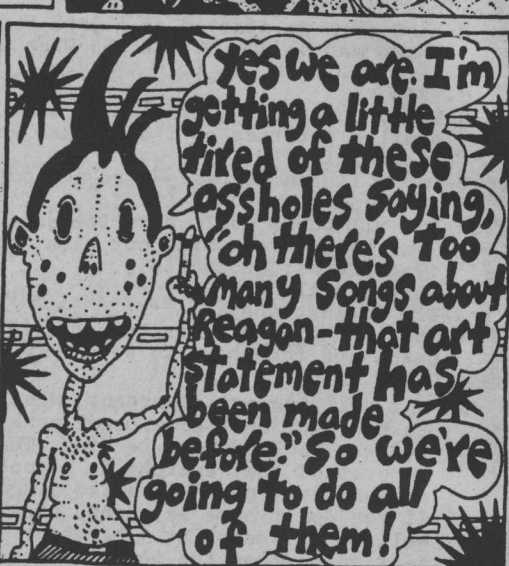 yes we are. I'm
getting a little
tired of these
assholes saying,
"oh there's too
many songs about
Reagan-that art
statement has
been made
before." So we're
going to do all
of them!